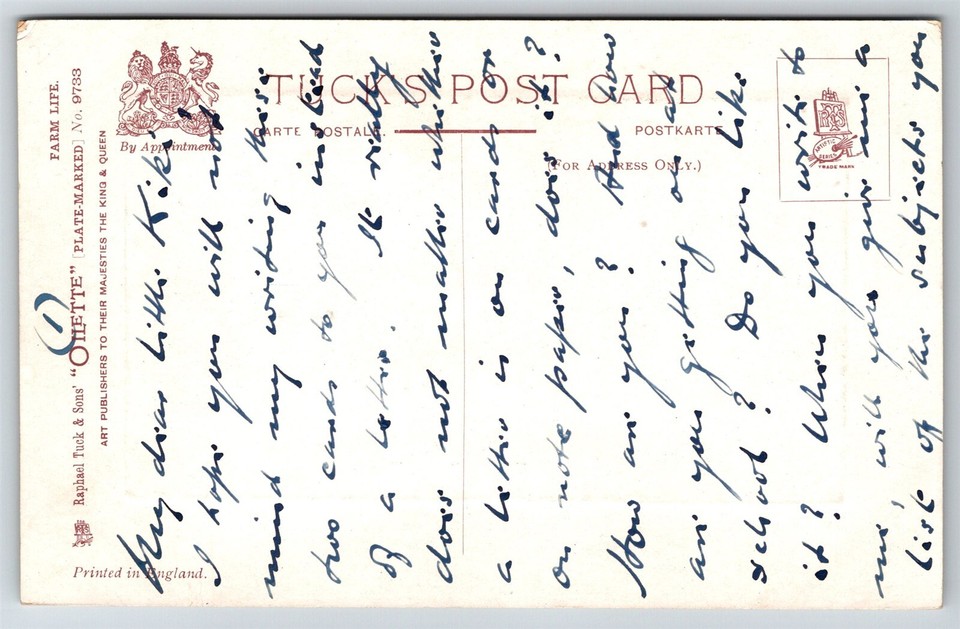 FARM LIFE.
Raphael Tuck & Sons' "OILETTE" [PLATE-MARKED] No. 9733
ART PUBLISHERS TO THEIR MAJESTIES THE KING & QUEEN
By Appointment
TUCK'S POST CARD
CARTE POSTALE.
POSTKARTE
(FOR ADDRESS ONLY.)
ARTISTIC SERIES
TRADE MARK
Printed in England.
(1)
My dear little Kiki
I hope you will not
mind my writing this
two cards to you instead
of a letter. It really
does not matter whether
a letter is on cards or
on note paper, does it?
How are you? And how
are you getting on at
school? Do you like
it? When you write to
me will you give me a
list of the subjects you